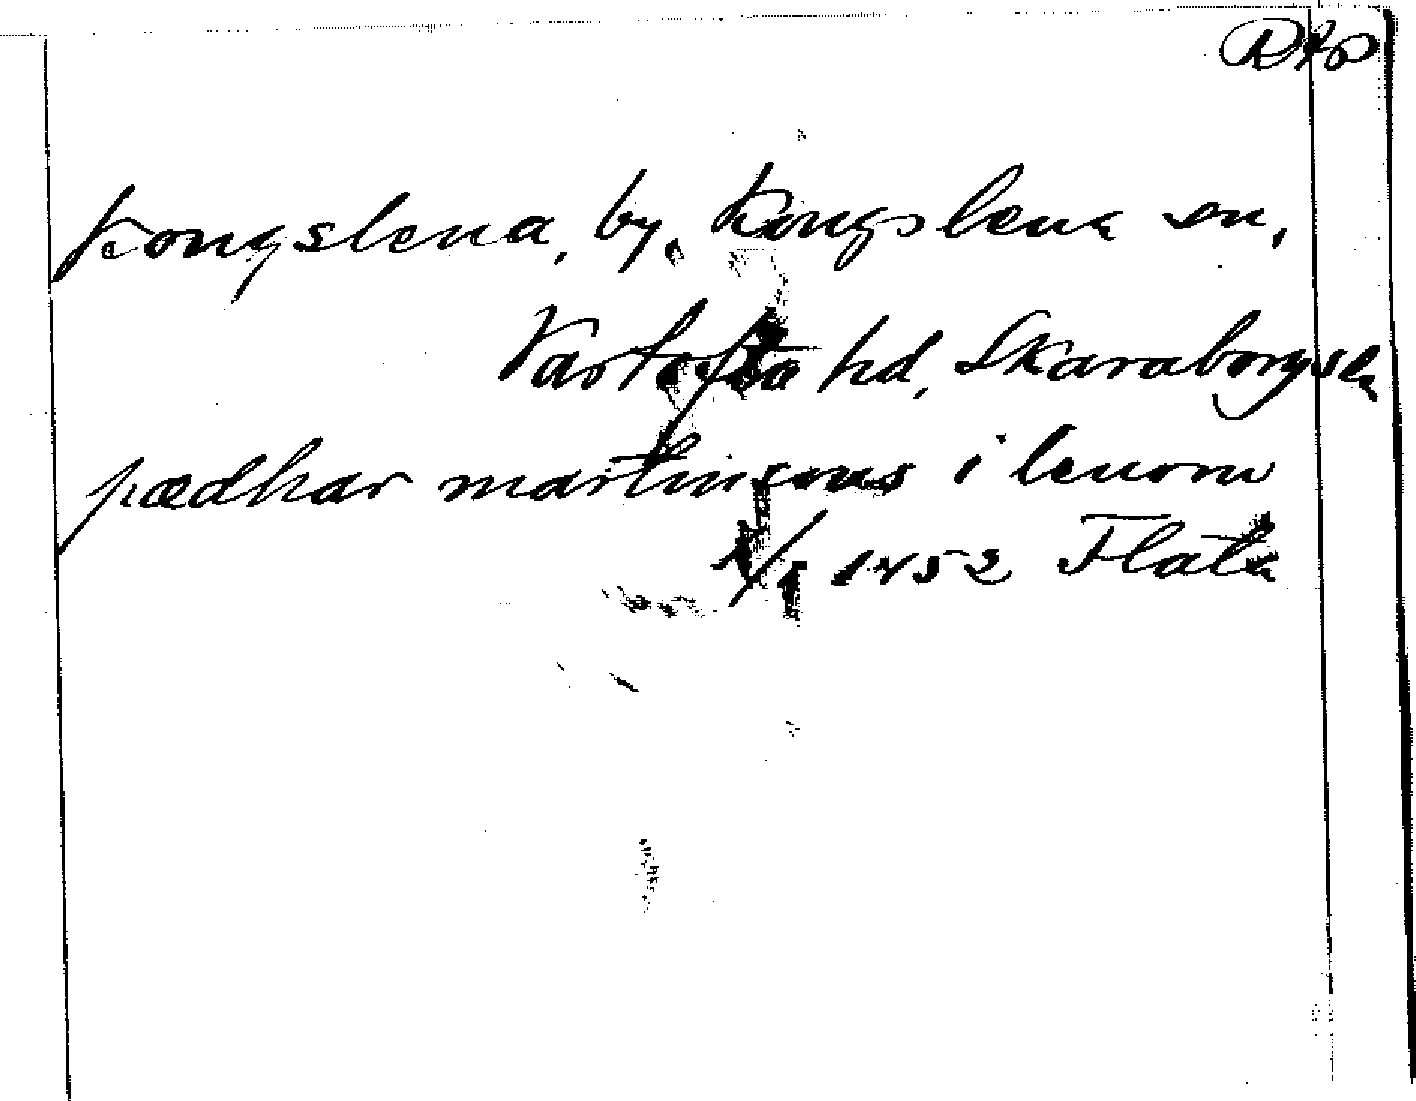 RAp
Kongslena, by, Kongslena sn,
Vartofta hd, Skaraborgs l.
pædhar martinsons i lenom
1452 Flata